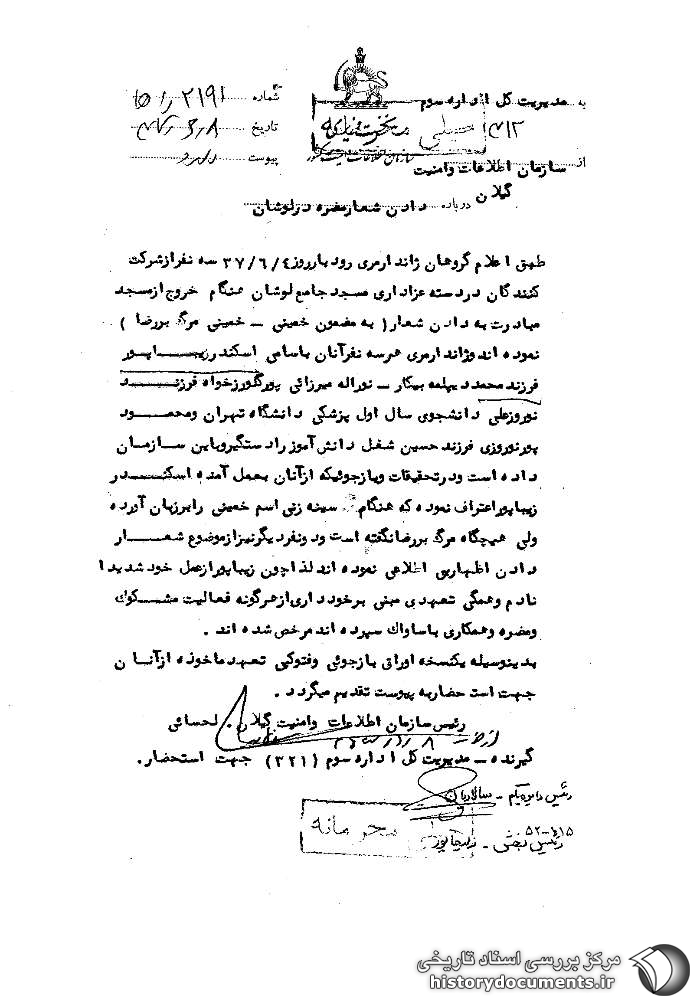 به مدیریت کل اداره سوم
۳۱۲
شماره ۲۱۹۱
تاریخ
پیوست
خیلی
از سازمان اطلاعات وامنیت
گیلان
درباره دادن شعارمضره درلوشان
طبق اعلام گروهان ژاندارمری رودبارروز ۳۷/۶/۴ سه نفرازشرکت
کنندگان دردسته عزاداری مسجد جامع لوشان هنگام خروج ازمسجد
مبادرت به دادن شعار( به مضمون خمینی – خمینی مرگ بررضا )
نموده اندوژاندارمری هرسه نفرآنان باسامی اسکندرزیباپور
فرزند محمد دیپلمه بیکار – نوراله میرزائی پورگلورزخواه فرزند
نوروزعلی دانشجوی سال اول پزشکی دانشگاه تهران ومحمود
پورنوروزی فرزند حسین شغل دانش آموز رادستگیروباین سازمان
داده است ودرتحقیقات وبازجوئیکه ازآنان بعمل آمده اسکندر
زیباپوراعتراف نموده که هنگام سینه زنی اسم خمینی رابرزبان آورده
ولی هیچگاه مرگ بررضانگفته است ودونفردیگرنیزازموضوع شعار
دادن اظهاربی اطلاعی نموده اندلذاچون زیباپورازعمل خود شدیدا
نادم وهمگی تعهدی مبنی برخودداری ازهرگونه فعالیت مشکوک
ومضره وهمکاری باساواک سپرده اند مرخص شده اند .
بدینوسیله یکنسخه اوراق بازجوئی وفتوکپی تعهد ماخوذه ازآنان
جهت استحضاربه پیوست تقدیم میگردد .
رئیس سازمان اطلاعات وامنیت گیلان . لحسائی
گیرنده – مدیریت کل اداره سوم (۳۲۱) جهت استحضار .
رئیس دایره یکم – سالاریان
محرمانه
رئیس بخش –
مرکز بررسی اسناد تاریخی
historydocuments.ir